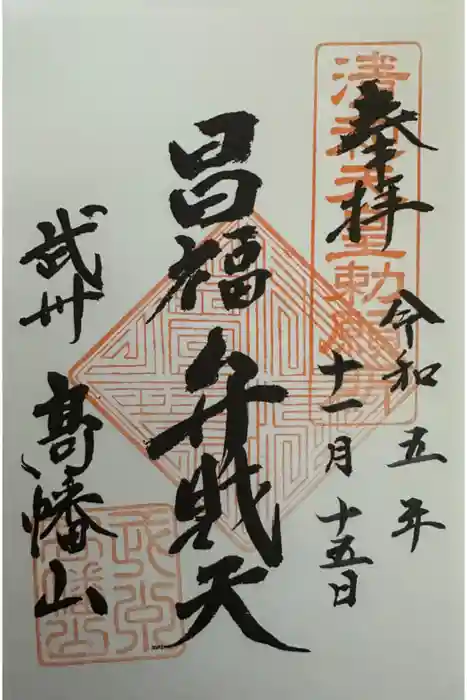 奉拝
令和五年
十一月十五日
昌福弁財天
武州
髙幡山
清和天皇勅願所